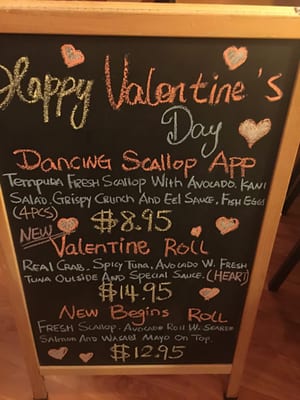 Happy Valentine's
Day
Dancing Scallop App
Tempura Fresh Scallop With Avocado. Kani
Salad. Crispy Crunch And Eel Sauce. Fish Eggs
(4PCS)
$8.95
NEW
Valentine Roll
Real Crab. Spicy Tuna, Avocado W. Fresh
Tuna Outside And Special Sauce. (HEART)
$14.95
New Begins Roll
Fresh Scallop. Avocado Roll W. Seared
Salmon And Wasabi Mayo On Top.
$12.95